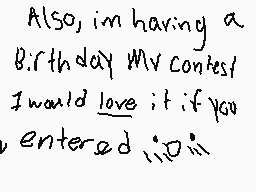 Also, im having a
Birthday MV contest
I would love it if you
entered